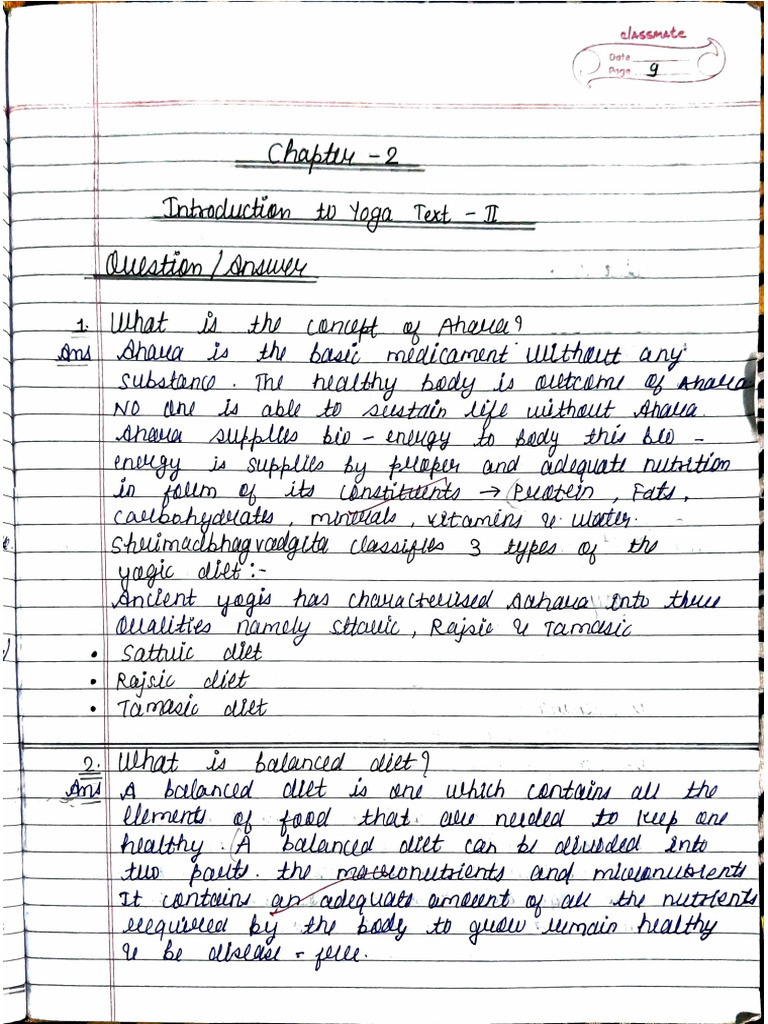 classmate
Date
Page 9
Chapter - 2
Introduction to Yoga Text - II
Question / Answer
1. What is the concept of Ahara?
Ans Ahara is the basic medicament without any
substance. The healthy body is outcome of Ahara
No one is able to sustain life without Ahara.
Ahara supplies bio - energy to body this bio -
energy is supplies by proper and adequate nutrition
in form of its constituents → Protein, Fats,
carbohydrates, minerals, vitamins & water.
Shrimadbhagvadgita classifies 3 types of the
yogic diet :-
Ancient yogis has characterised Aahara into three
Qualities namely sttavic, Rajsic & Tamasic
• Sattvic diet
• Rajsic diet
• Tamasic diet
2. What is balanced diet?
Ans A balanced diet is one which contains all the
elements of food that are needed to keep one
healthy. (A balanced diet can be divided into
two parts. the macronutrients and micronutrients
It contains an adequate amount of all the nutrients
required by the body to grow remain healthy
& be disease - free.